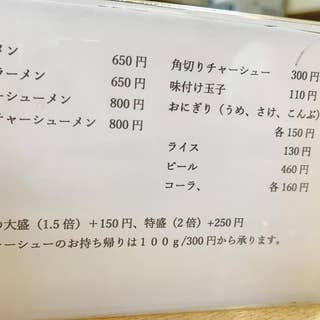 メン 650円
ラーメン 650円
ーシューメン 800円
チャーシューメン 800円
角切りチャーシュー 300円
味付け玉子 110円
おにぎり（うめ、さけ、こんぶ）
各150円
ライス 130円
ビール 460円
コーラ、 各160円
の大盛（1.5倍）＋150円、特盛（2倍）+250円
ャーシューのお持ち帰りは１００g/300円から承ります。